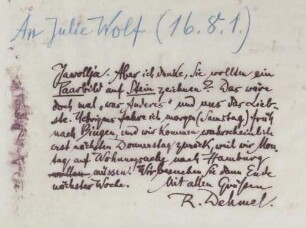 An Julie Wolf (16.8.1.)
Jawollja. Aber ich denke, Sie wollten ein
Paarbild auf Stein zeichnen? Das wäre
doch mal was Andres, und uns das Lieb-
ste. Uebrigens fahre ich morgen (Samstag) früh
nach Bingen, und wir kommen wahrscheinlich
erst nächsten Donnerstag zurück, weil wir Mon-
tag auf Wohnungssuche nach Hamburg
müssen. Wir besuchen Sie dann Ende
nächster Woche. Mit allen Grüßen
R. Dehmel.